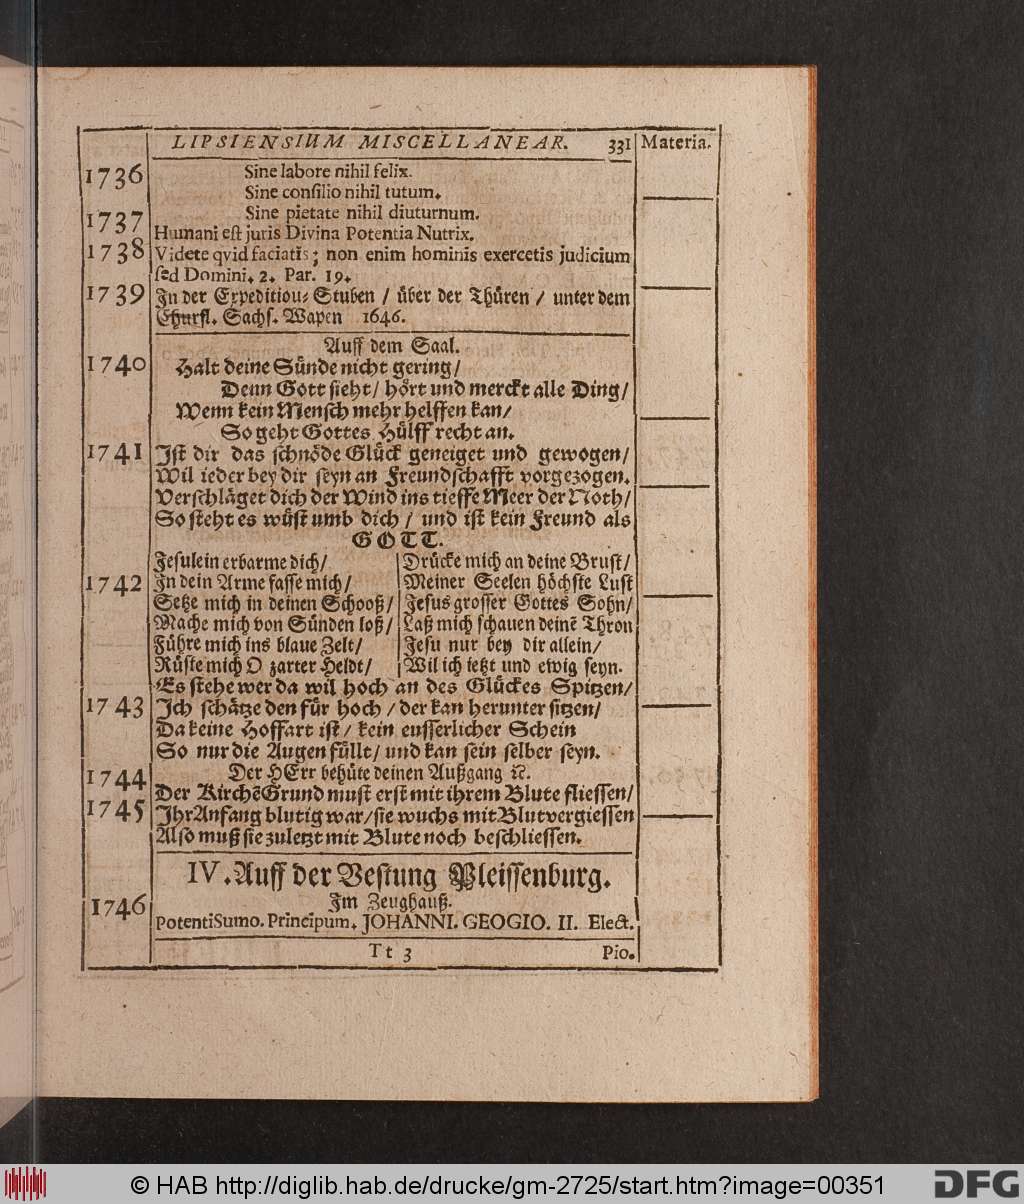 LIPSIENSIUM MISCELLANEAR. 331 Materia.
1736 Sine labore nihil felix.
Sine consilio nihil tutum.
Sine pietate nihil diuturnum.
1737 Humani est juris Divina Potentia Nutrix.
1738 Videte qvid faciatis; non enim hominis exercetis judicium
sed Domini. 2. Par. 19.
1739 In der Expeditiou-Stuben / über der Thüren / unter dem
Churfl. Sächs. Wapen 1646.
Auff dem Saal.
1740 Halt deine Sünde nicht gering/
Denn Gott sieht/ hört und merckt alle Ding/
Wenn kein Mensch mehr helffen kan/
So geht Gottes Hülff recht an.
1741 Ist dir das schnöde Glück geneiget und gewogen/
Wil ieder bey dir seyn an Freundschafft vorgezogen.
Verschläget dich der Wind ins tieffe Meer der Noth/
So steht es wüst umb dich / und ist kein Freund als
GOTT.
Jesulein erbarme dich/
1742 In dein Arme fasse mich/
Setze mich in deinen Schooß/
Mache mich von Sünden loß/
Führe mich ins blaue Zelt/
Rüste mich O zarter Heldt/
Drücke mich an deine Brust/
Meiner Seelen höchste Lust
Jesus grosser Gottes Sohn/
Laß mich schauen deinē Thron
Jesu nur bey dir allein/
Wil ich ietzt und ewig seyn.
Es stehe wer da wil hoch an des Glückes Spitzen/
1743 Ich schätze den für hoch / der kan herunter sitzen/
Da keine Hoffart ist/ kein eusserlicher Schein
So nur die Augen füllt/ und kan sein selber seyn.
1744 Der HErr behüte deinen Außgang ꝛc.
Der Kirchē Grund must erst mit ihrem Blute fliessen/
1745 Ihr Anfang blutig war/sie wuchs mit Blutvergiessen
Also muß sie zuletzt mit Blute noch beschliessen.
IV. Auff der Vestung Pleissenburg.
Im Zeughauß.
1746 PotentiSumo. Principum. JOHANNI. GEOGIO. II. Elect.
Tt 3 Pio.
© HAB http://diglib.hab.de/drucke/gm-2725/start.htm?image=00351
DFG